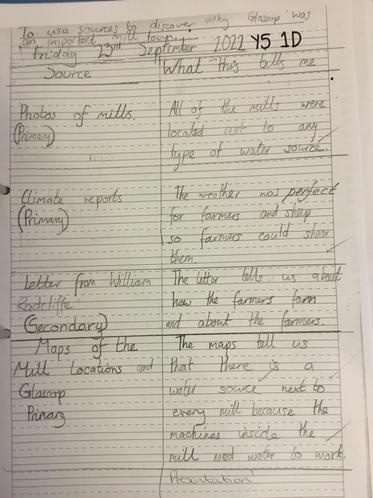 To use sources to discover why Glossop was
an important mill town.
Friday 23rd September 2022 Y5 1D
Source
What this tells me
Photos of mills.
(Primary)
All of the mills were
located next to any
type of water source.
Climate reports
(Primary)
The weather was perfect
for farmers and sheep
so farmers could shear
them.
Letter from William
Radcliffe
(Secondary)
The letter tells us about
how the farmers farm
and about the farmers.
Maps of the
Mill locations and
Glossop
Primary
The maps tell us
that there is a
water source next to
every mill because the
machines inside the
mill need water to work.
Presentation